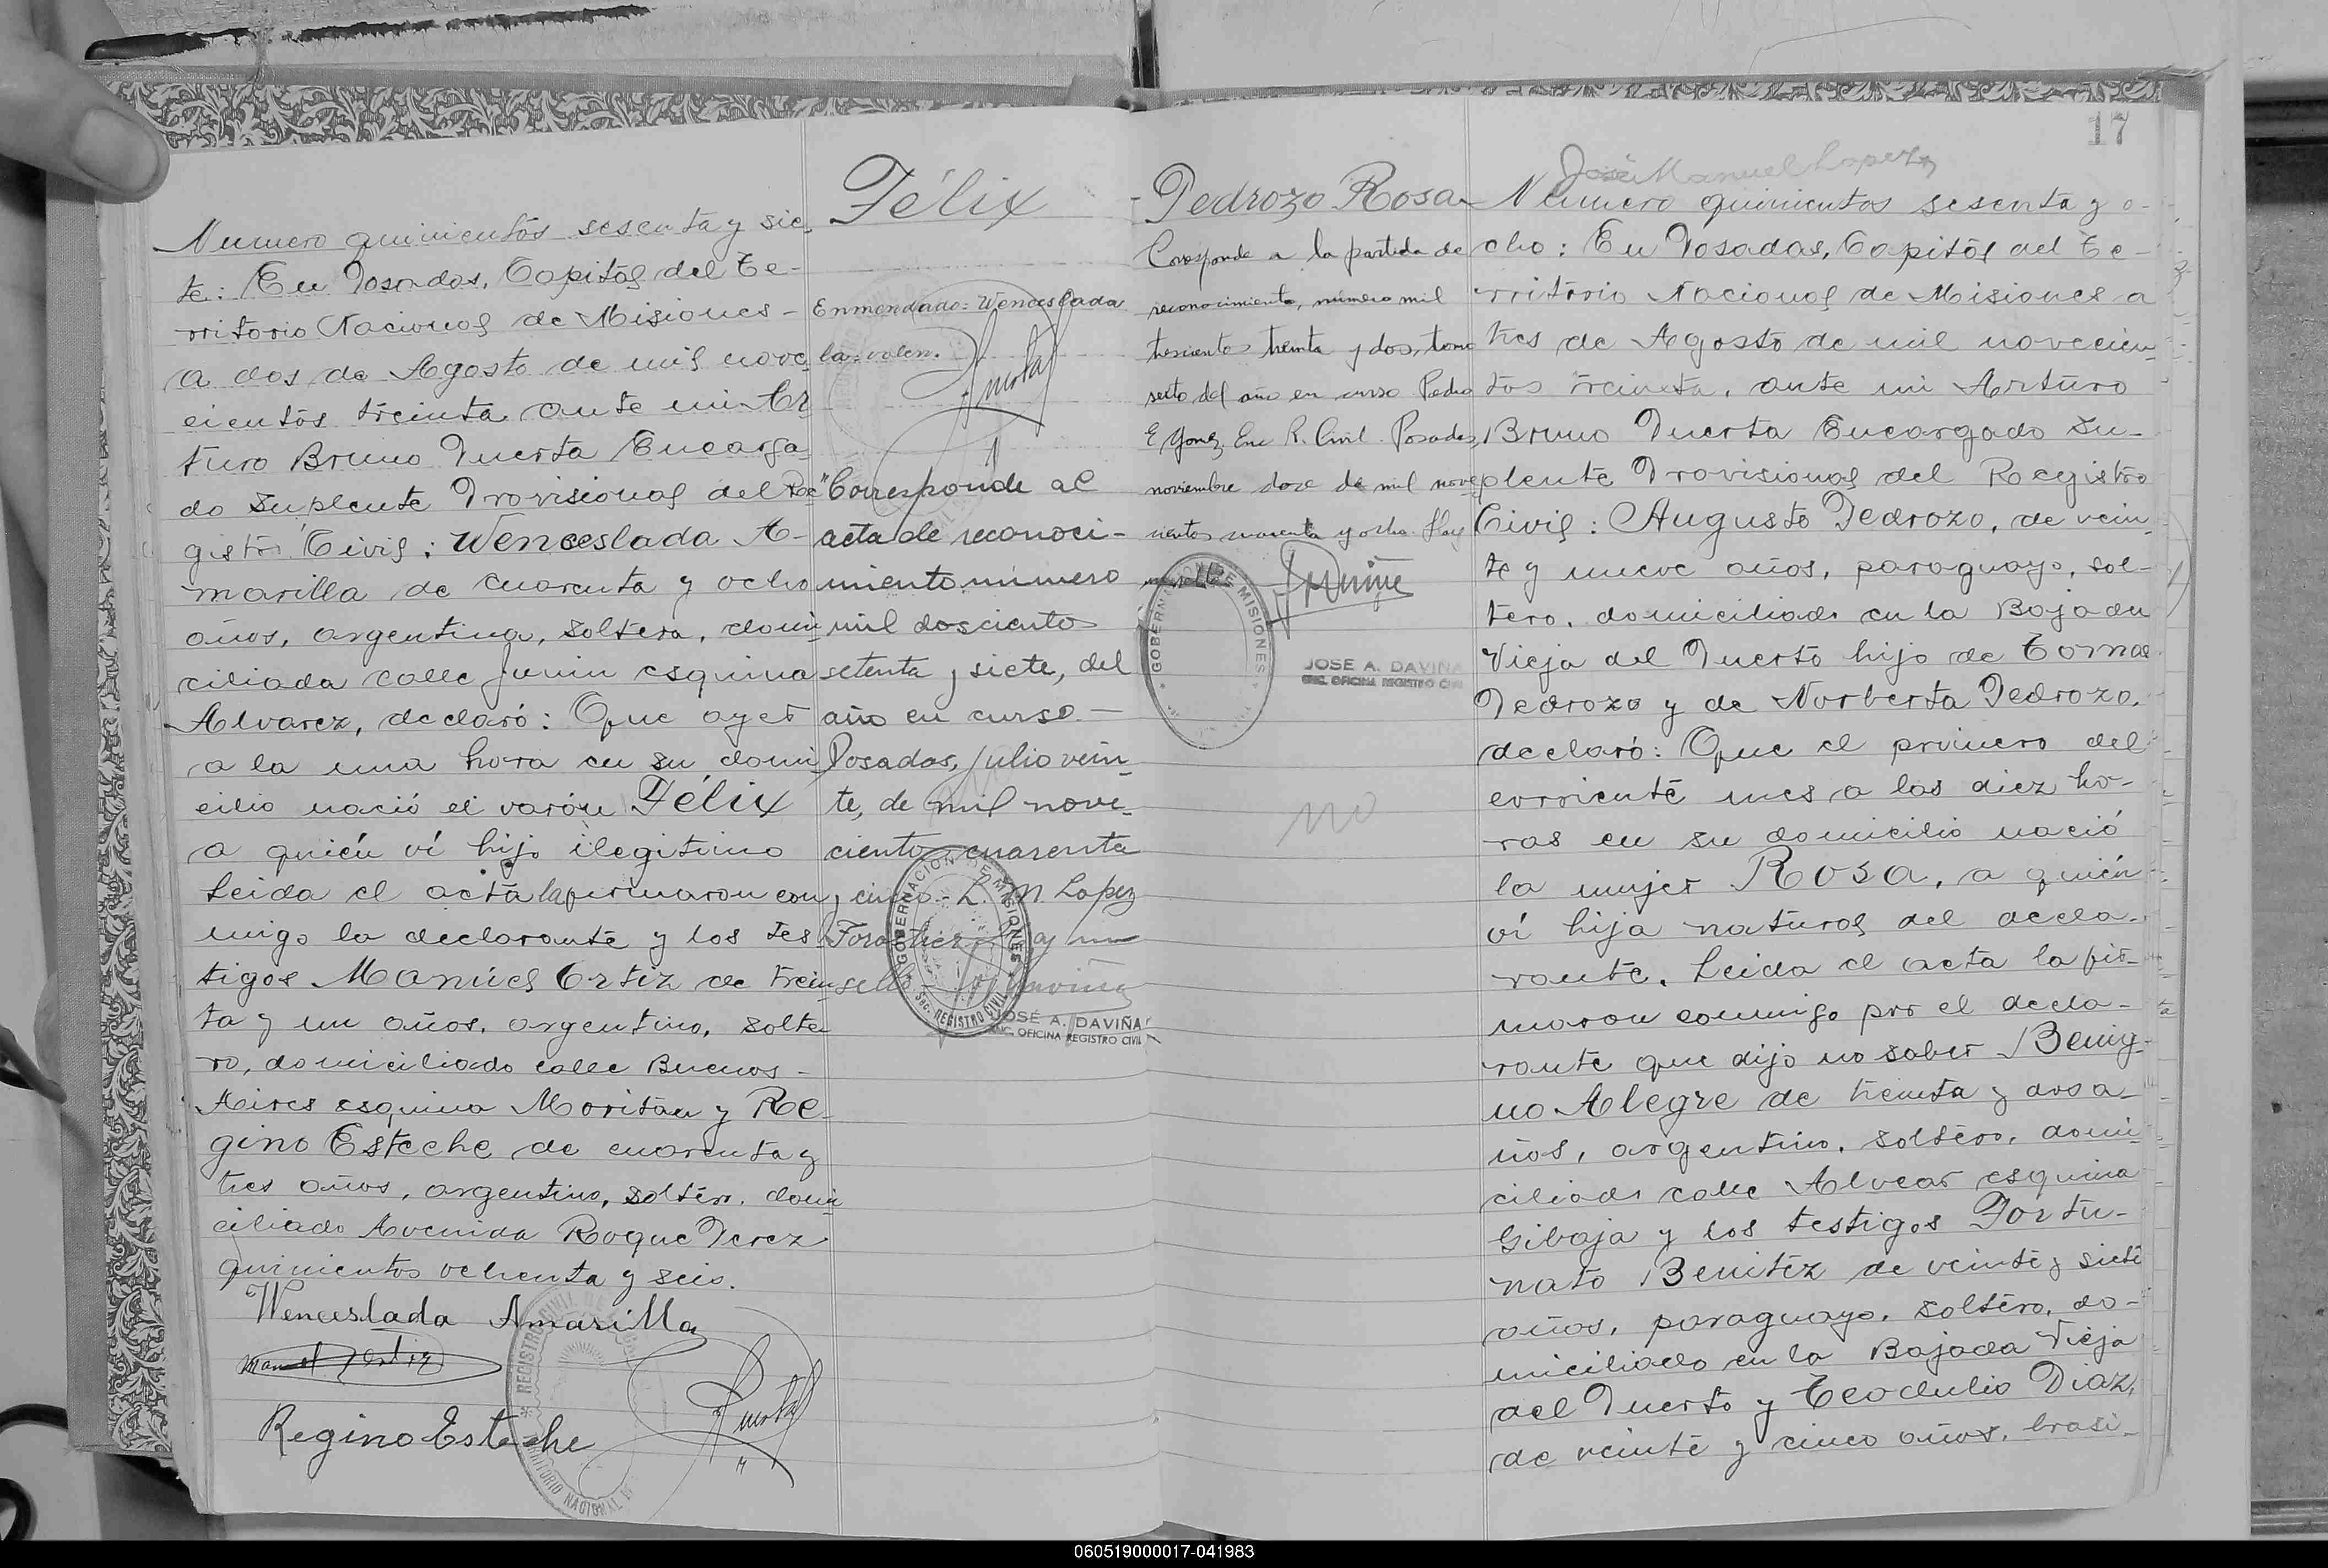 17
Numero quinientos sesenta y sie-
te: En Posadas, Capital del Te-
rritorio Nacional de Misiones -
a dos de Agosto de mil nove
cientos treinta ante mi Ar
turo Bruno Puerta Encarga
do Suplente Provisional del Re
gistro Civil: Wenceslada A-
marilla de cuarenta y ocho
años, argentina, soltera, domi
ciliada calle Junin esquina
Alvarez, declaró: Que ayer
a la una hora en su domi
cilio nació el varón Félix
a quién ví hijo ilegitimo
Leida el acta la firmaron con
migo la declarante y los tes
tigos Manuel Ortiz de trein
ta y un años, argentino, solte
ro, domiciliado calle Buenos -
Aires esquina Moritán y Re
gino Esteche de cuarenta y
tres años, argentino, soltero, domi
ciliado Avenida Roque Perez
quinientos ochenta y seis.
Wenceslada Amarilla
Manuel Ortiz
Regino Esteche
Félix
Enmendado: Wenceslada
la: valen.
"Corresponde al
acta de reconoci-
miento número
mil doscientos
setenta y siete, del
año en curso. -
Posadas, Julio vein-
te, de mil nove-
ciento cuarenta
y cinco - L. N. Lopez
Forastier
sello
GOBERNACIÓN DE MISIONES
Sec. REGISTRO CIVIL
JOSÉ A. DAVIÑA
ENC. OFICINA REGISTRO CIVIL
Pedrozo Rosa
Corresponde a la partida de
reconocimiento, número mil
trescientos treinta y dos, tomo
sexto del año en curso Pedro
E Gomez Enc R. Civil. Posadas,
noviembre doce de mil nove
cientos cuarenta y ocho. Hay
GOBERNACIÓN DE MISIONES
JOSE A. DAVIÑA
ENC. OFICINA REGISTRO CIVIL
no
José Manuel Lopez
Numero quinientos sesenta y o-
cho: En Posadas, Capital del Te-
rritorio Nacional de Misiones a
tres de Agosto de mil novecien-
tos treinta, ante mi Arturo
Bruno Puerta Encargado Su-
plente Provisional del Registro
Civil: Augusto Pedrozo, de vein-
te y nueve años, paraguayo, sol-
tero, domiciliado en la Bajada
Vieja del Puerto hijo de Tomas
Pedrozo y de Norberta Pedrozo,
declaró: Que el primero del
corriente mes a las diez ho-
ras en su domicilio nació
la mujer Rosa, a quién
ví hija natural del decla-
rante. Leida el acta la fir-
maron conmigo por el decla-
rante que dijo no saber Benig-
no Alegre de treinta y dos a-
ños, argentino, soltero, domi-
ciliado calle Alvear esquina
Gibaja y los testigos Fortu-
nato Benitez de veinte y siete
años, paraguayo, soltero, do-
miciliado en la Bajada Vieja
del Puerto y Teodulio Diaz,
de veinte y cinco años, brasi-
060519000017-041983